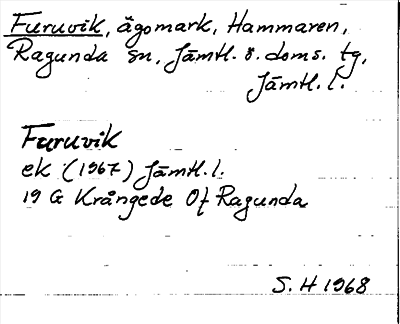 Furuvik, ägomark, Hammaren,
Ragunda sn, Jämtl. ö. doms. tg,
Jämtl. l.
Furuvik
ek (1967) Jämtl. l.
19 G Krångede Of Ragunda
S. H 1968